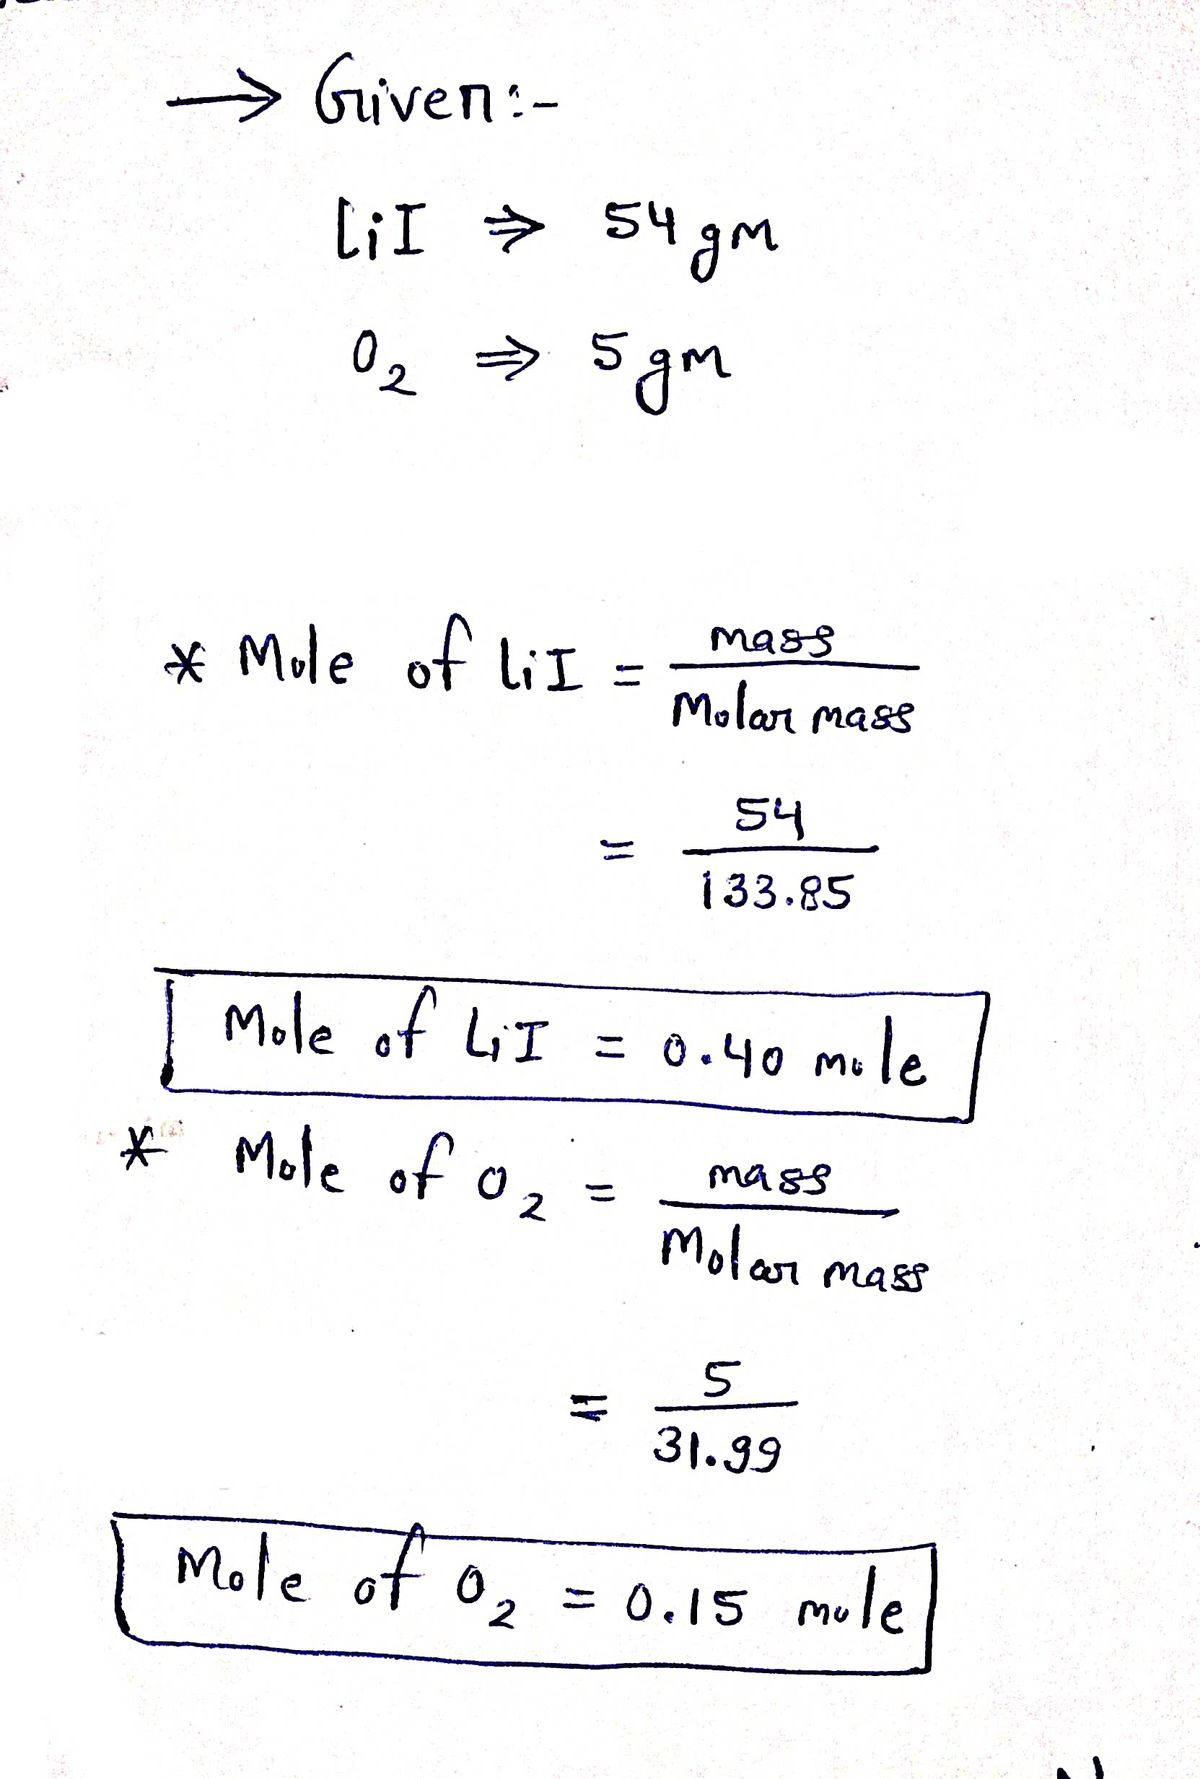 → Given:-
LiI ⇒ 54 gm
O₂ ⇒ 5 gm
* Mole of LiI = mass / Molar mass
= 54 / 133.85
Mole of LiI = 0.40 mole
* Mole of O₂ = mass / Molar mass
= 5 / 31.99
Mole of O₂ = 0.15 mole